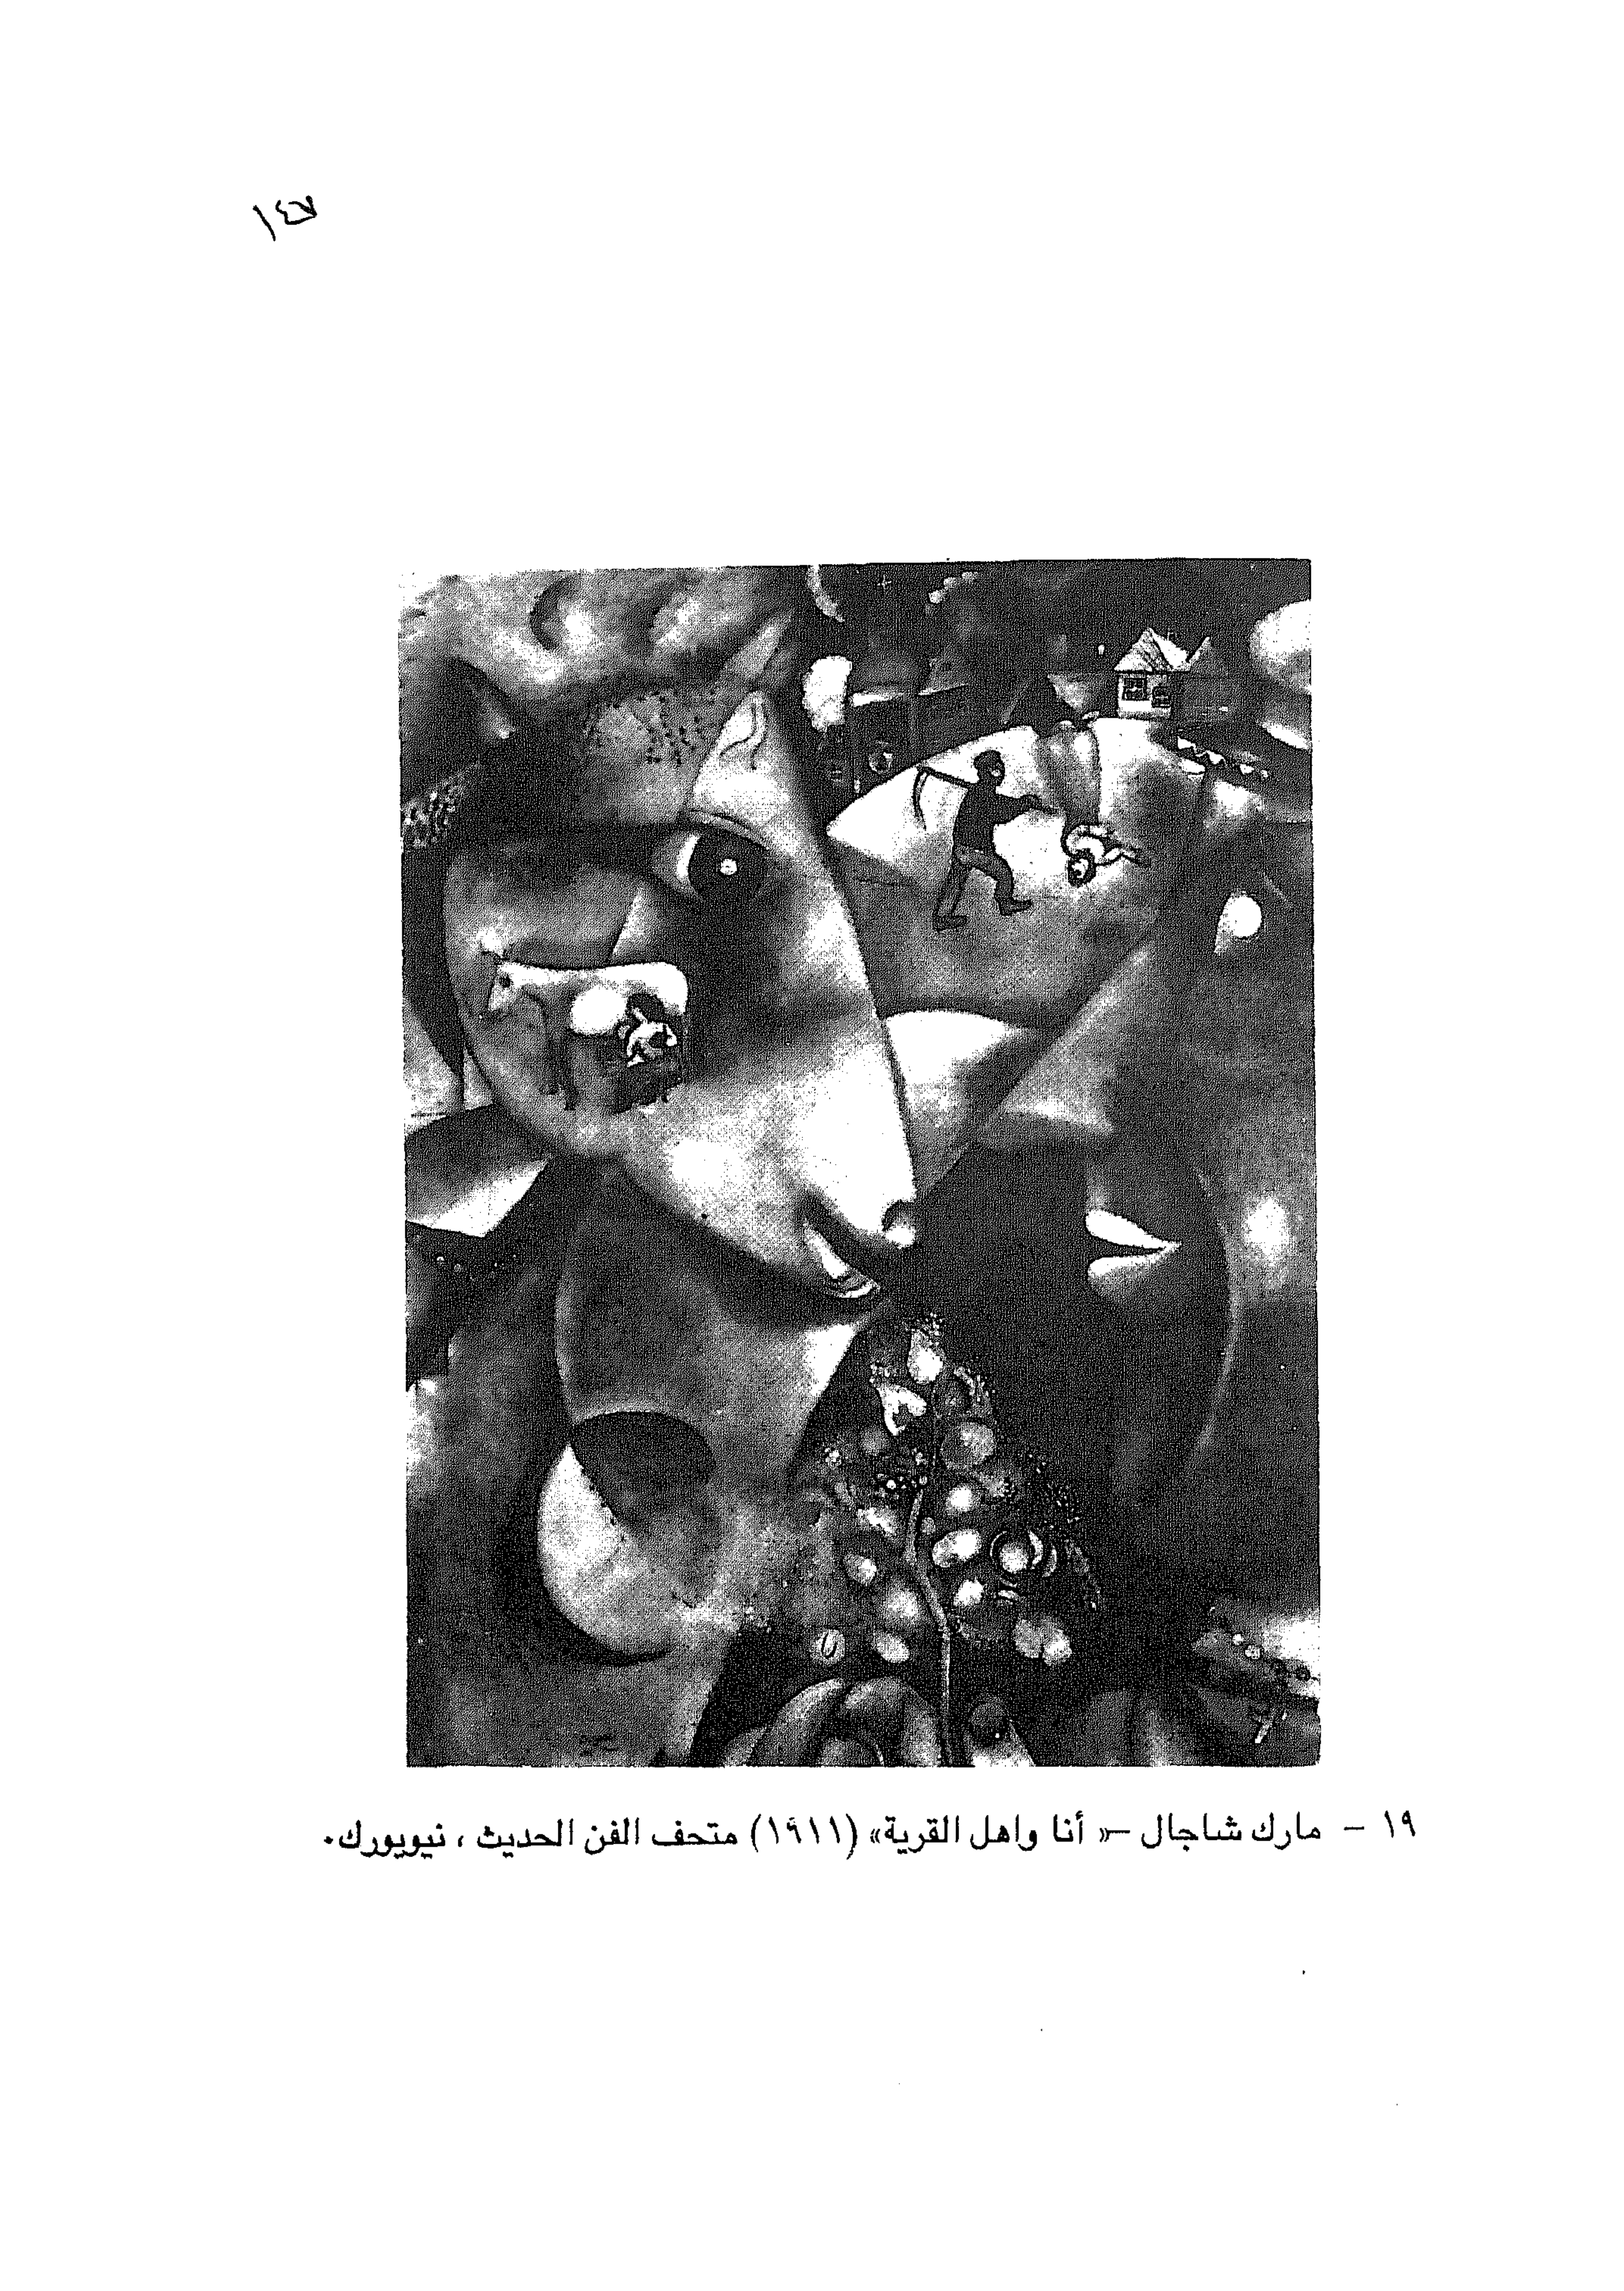 ١٤٧
١٩ – مارك شاجال –« أنا واهل القرية» (١٩١١) متحف الفن الحديث ، نيويورك.